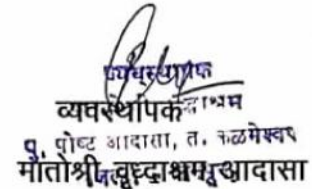 व्यवस्थापक
व्यवस्थापक
पोष्ट आदासा, त. कळमेश्वर
मातोश्री वृध्दाश्रम, आदासा